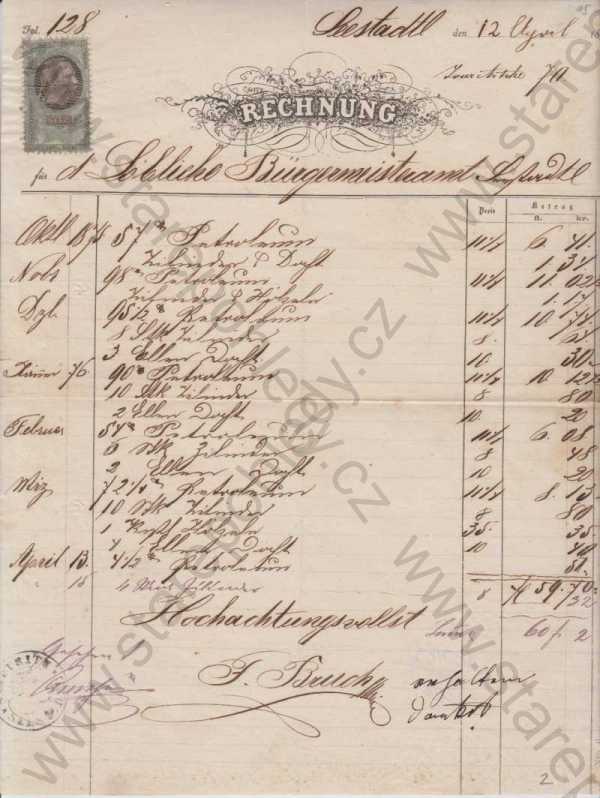 Fol. 128
Seestadtl den 12 April
RECHNUNG
für d Löbliche Bürgermeisteramt Seestadtl
Preis Betrag
fl. kr.
Oktb 1875 57 Petroleum 11 1/2 6 41
Zilinder & Docht 1.
Novb 98 Petroleum 11 1/2 11 02
Zilinder & Hölzeln
Dzb. 95 1/2 Petroleum 11 1/2 10 74
8 Stk Zilinder 8 64
3 Ellen Docht 10 30
Jänner 76 90 Petroleum 11 1/2 10 12
10 Stk Zilinder 8 80
2 Ellen Docht 10 20
Februar 54 Petroleum 11 1/2 6. 08
6 Stk Zilinder 8 48
2 Ellen Docht 10 20
Mrz 72 1/2 Petroleum 11 1/2 8. 13
10 Stk Zilinder 8 80
1 Hölzeln 35. 35.
4 Ellen Docht 10 40
April 13. 4 1/2 Petroleum
15 4 8 32
fl 59.70
Hochachtungsvollst
60 f. 2
Gesehen
erhalten
dankb
2
www.starepohledy.cz